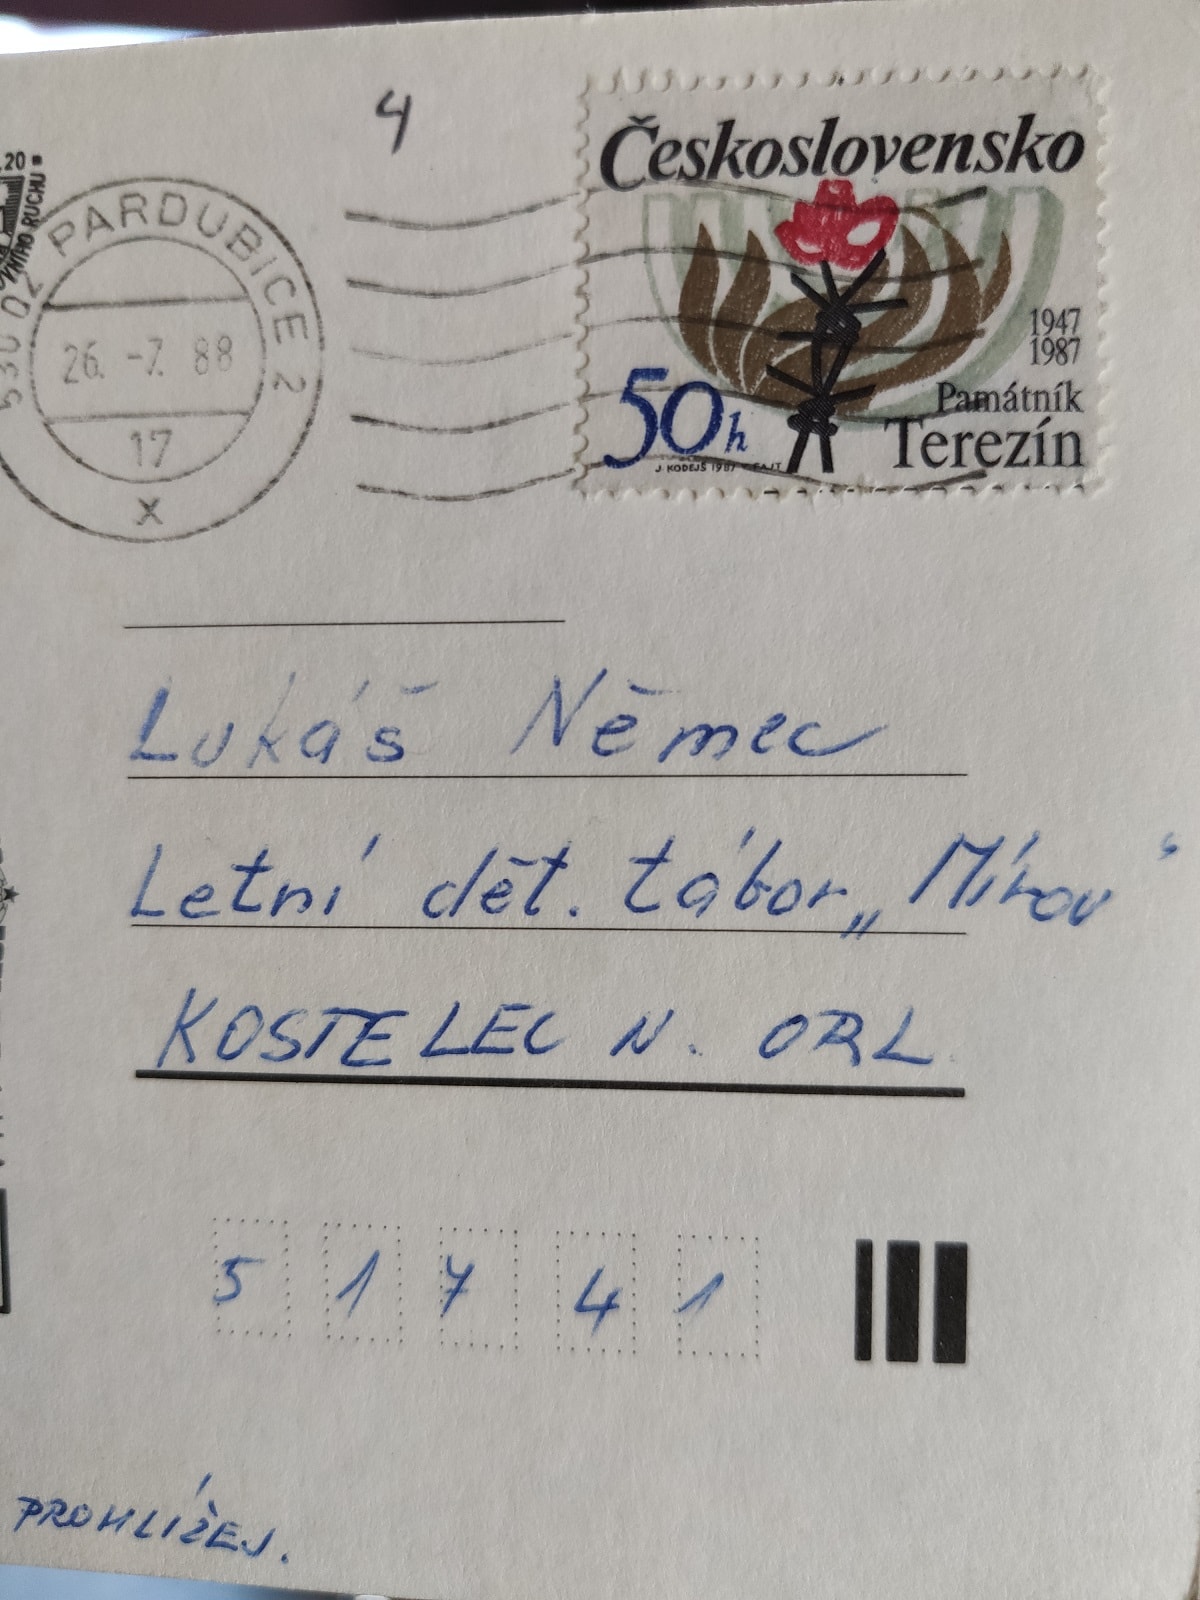 4
Československo
.20
VNÍHO RUCHU
530 02 PARDUBICE 2
26. -7. 88
17
x
1947
1987
Památník
Terezín
50h
J. KODEJŠ 1987
Lukáš Němec
Letní dět. tábor „Mírov“
KOSTELEC N. ORL.
5 1 7 4 1
PROHLÍŽEJ.